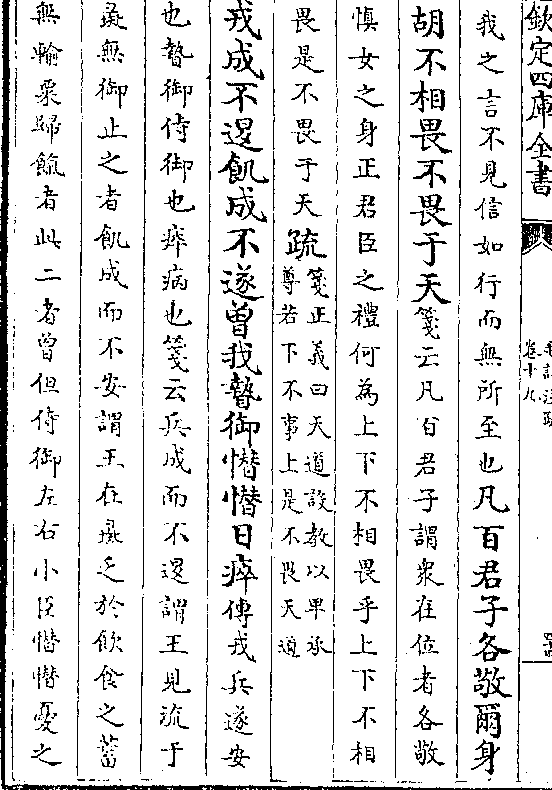 欽定四庫全書
卷十九
我之言不見信如行而無所至也凡百君子各敬爾身
胡不相畏不畏于天箋云凡百君子謂衆在位者各敬
慎女之身正君臣之禮何為上下不相畏乎上下不相
畏是不畏于天疏箋正義曰天道設教以卑承
尊若下不事上是不畏天道
戎成不退飢成不遂曾我暬御憯憯日瘁傳戎兵遂安
也暬御侍御也瘁病也箋云兵成而不退謂王見流于
彘無御止之者飢成而不安謂王在彘乏於飲食之蓄
無輸粟歸餼者此二者曾但侍御左右小臣憯憯憂之